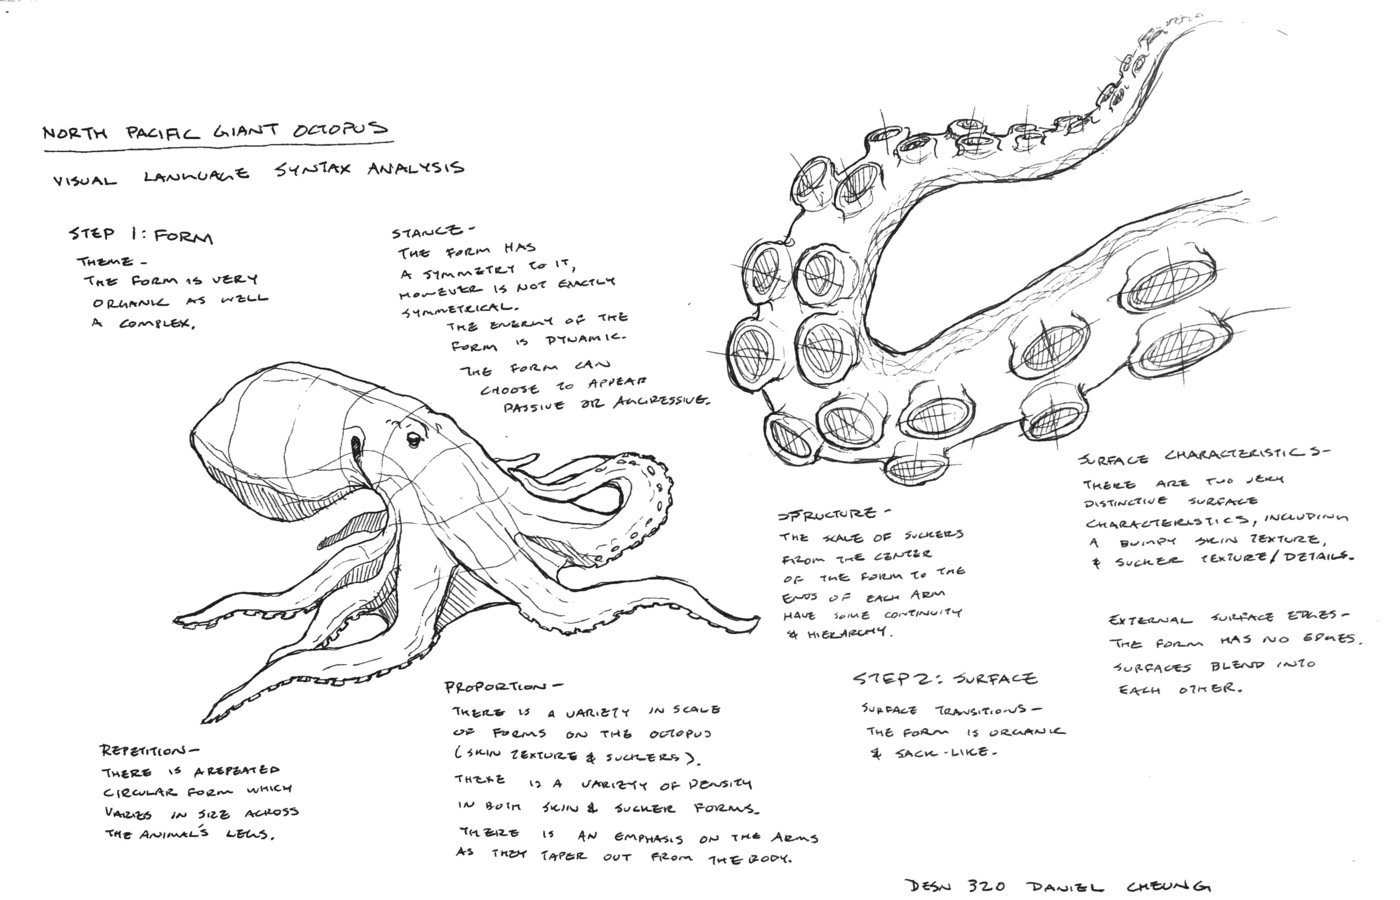 NORTH PACIFIC GIANT OCTOPUS
VISUAL LANGUAGE SYNTAX ANALYSIS
STEP 1: FORM
THEME -
THE FORM IS VERY
ORGANIC AS WELL
A COMPLEX.
STANCE -
THE FORM HAS
A SYMMETRY TO IT,
HOWEVER IS NOT EXACTLY
SYMMETRICAL.
THE ENERGY OF THE
FORM IS DYNAMIC.
THE FORM CAN
CHOOSE TO APPEAR
PASSIVE OR AGGRESSIVE.
STRUCTURE -
THE SCALE OF SUCKERS
FROM THE CENTER
OF THE FORM TO THE
ENDS OF EACH ARM
HAVE SOME CONTINUITY
& HIERARCHY.
SURFACE CHARACTERISTICS -
THERE ARE TWO VERY
DISTINCTIVE SURFACE
CHARACTERISTICS, INCLUDING
A BUMPY SKIN TEXTURE,
& SUCKER TEXTURE/DETAILS.
EXTERNAL SURFACE EDGES -
THE FORM HAS NO EDGES.
SURFACES BLEND INTO
EACH OTHER.
STEP 2: SURFACE
SURFACE TRANSITIONS -
THE FORM IS ORGANIC
& SACK-LIKE.
PROPORTION -
THERE IS A VARIETY IN SCALE
OF FORMS ON THE OCTOPUS
(SKIN TEXTURE & SUCKERS).
THERE IS A VARIETY OF DENSITY
IN BOTH SKIN & SUCKER FORMS.
THERE IS AN EMPHASIS ON THE ARMS
AS THEY TAPER OUT FROM THE BODY.
REPETITION -
THERE IS A REPEATED
CIRCULAR FORM WHICH
VARIES IN SIZE ACROSS
THE ANIMAL'S LEGS.
DESN 320 DANIEL CHEUNG